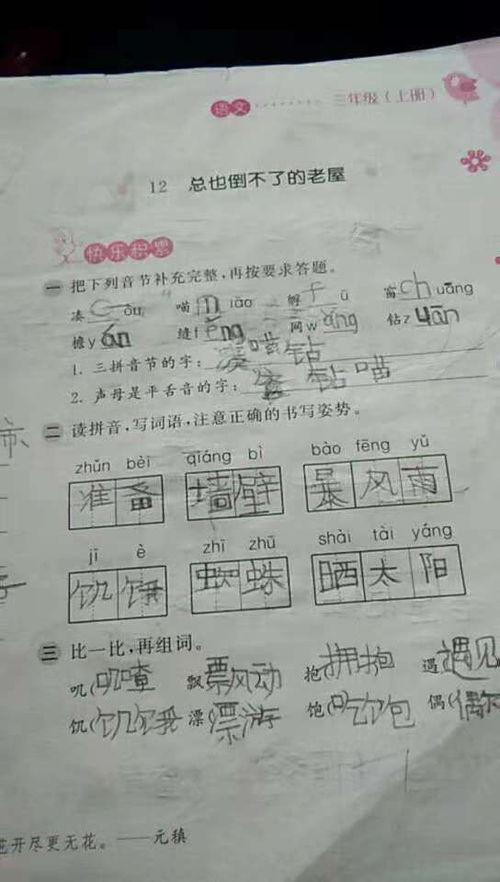 语文 三年级(上册)
12 总也倒不了的老屋
快乐积累
一 把下列音节补充完整,再按要求答题。
凑c òu 喵m iāo 孵f ū 窗ch uāng
檐y án 缝f èng 网w ǎng 钻z uān
1. 三拼音节的字: 喵钻
2. 声母是平舌音的字: 钻喵
二 读拼音,写词语,注意正确的书写姿势。
zhǔn bèi qiáng bì bào fēng yǔ
准备 墙壁 暴风雨
jī è zhī zhū shài tài yáng
饥饿 蜘蛛 晒太阳
三 比一比,再组词。
叽(叽喳 飘(飘风动 抱(拥抱 遇(遇见
饥(饥饿 漂(漂游 饱(吃饱 偶(偶尔
花开尽更无花。——元稹